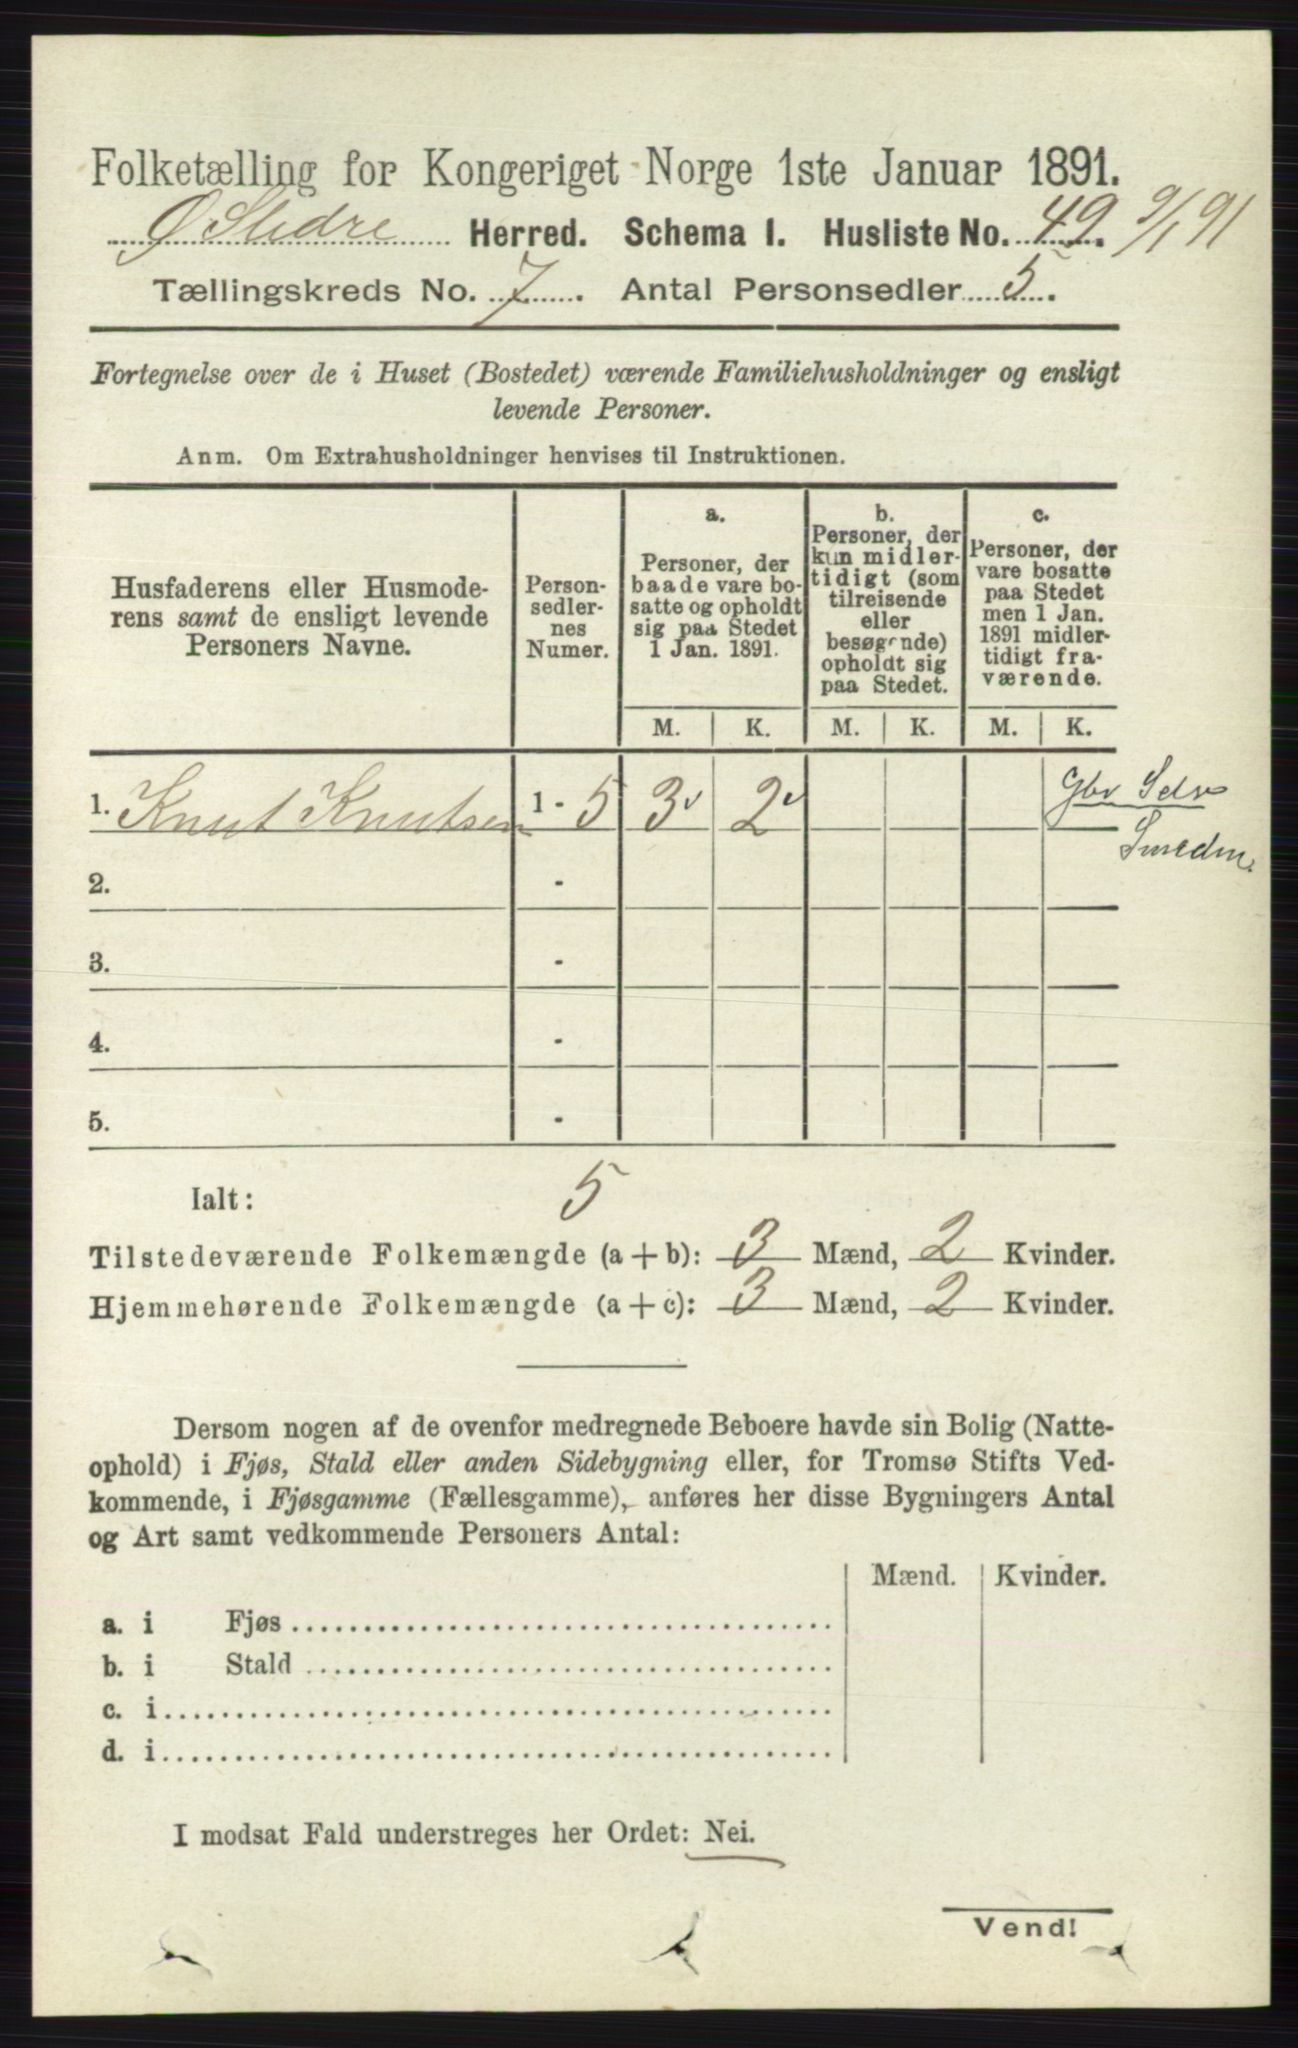 Folketælling for Kongeriget Norge 1ste Januar 1891.
Ø Slidre Herred. Schema I. Husliste No. 49. 9/1 91
Tællingskreds No. 7. Antal Personsedler 5.
Fortegnelse over de i Huset (Bostedet) værende Familiehusholdninger og ensligt
levende Personer.
Anm. Om Extrahusholdninger henvises til Instruktionen.
Husfaderens eller Husmode-
rens samt de ensligt levende
Personers Navne.
Person-
sedler-
nes
Numer.
a.
Personer, der
baade vare bo-
satte og opholdt
sig paa Stedet
1 Jan. 1891.
b.
Personer, der
kun midler-
tidigt (som
tilreisende
eller
besøgende)
opholdt sig
paa Stedet.
c.
Personer, der
vare bosatte
paa Stedet
men 1 Jan.
1891 midler-
tidigt fra-
værende.
M. K. M. K. M. K.
1. Knut Knutsen 1 - 5 3 2 Gbr
2. -
3. -
4. -
5. -
Ialt: 5
Tilstedeværende Folkemængde (a + b): 3 Mænd, 2 Kvinder.
Hjemmehørende Folkemængde (a + c): 3 Mænd, 2 Kvinder.
Dersom nogen af de ovenfor medregnede Beboere havde sin Bolig (Natte-
ophold) i Fjøs, Stald eller anden Sidebygning eller, for Tromsø Stifts Ved-
kommende, i Fjøsgamme (Fællesgamme), anføres her disse Bygningers Antal
og Art samt vedkommende Personers Antal:
Mænd. Kvinder.
a. i Fjøs
b. i Stald
c. i
d. i
I modsat Fald understreges her Ordet: Nei.
Vend!